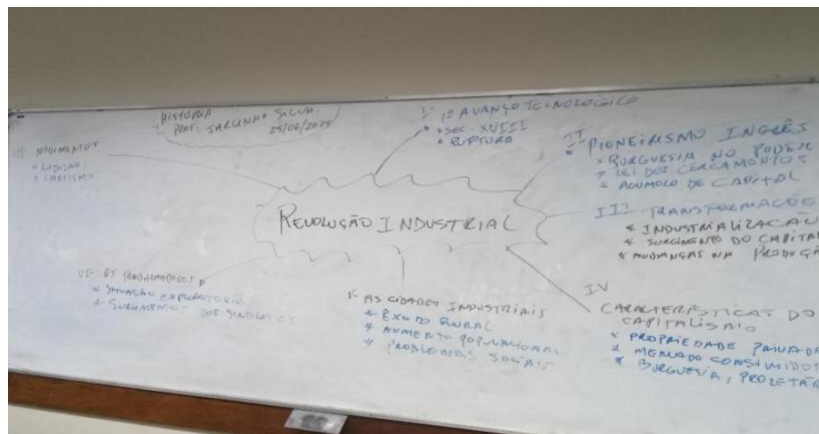 HISTÓRIA
PROF: SARLINHO SILVA
25/06/2024
I- 1º AVANÇO TECNOLÓGICO
* SEC. XVIII
* RUPTURA
II
PIONEIRISMO INGLÊS
* BURGUESIA NO PODER
* LEI DOS CERCAMENTOS
* ACUMOLO DE CAPITAL
III TRANSFORMAÇÕES
* INDUSTRIALIZAÇÃO
* SURGIMENTO DO CAPITA
* MUDANÇAS NA PRODUÇÃ
REVOLUÇÃO INDUSTRIAL
IV
CARACTERÍSTICAS DO
CAPITALISMO
* PROPRIEDADE PRIVADA
* MERCADO CONSUMIDOR
* BURGUESIA, PROLETÁR
V- AS CIDADES INDUSTRIAIS
* ÊXODO RURAL
* AUMENTO POPULACIONAL
* PROBLEMAS SOCIAIS
VI- OS TRABALHADORES
* SITUAÇÃO
* SURGIMENTO DOS SINDICATOS
VII- MOVIMENTOS
* LUDISMO
* CARTISMO